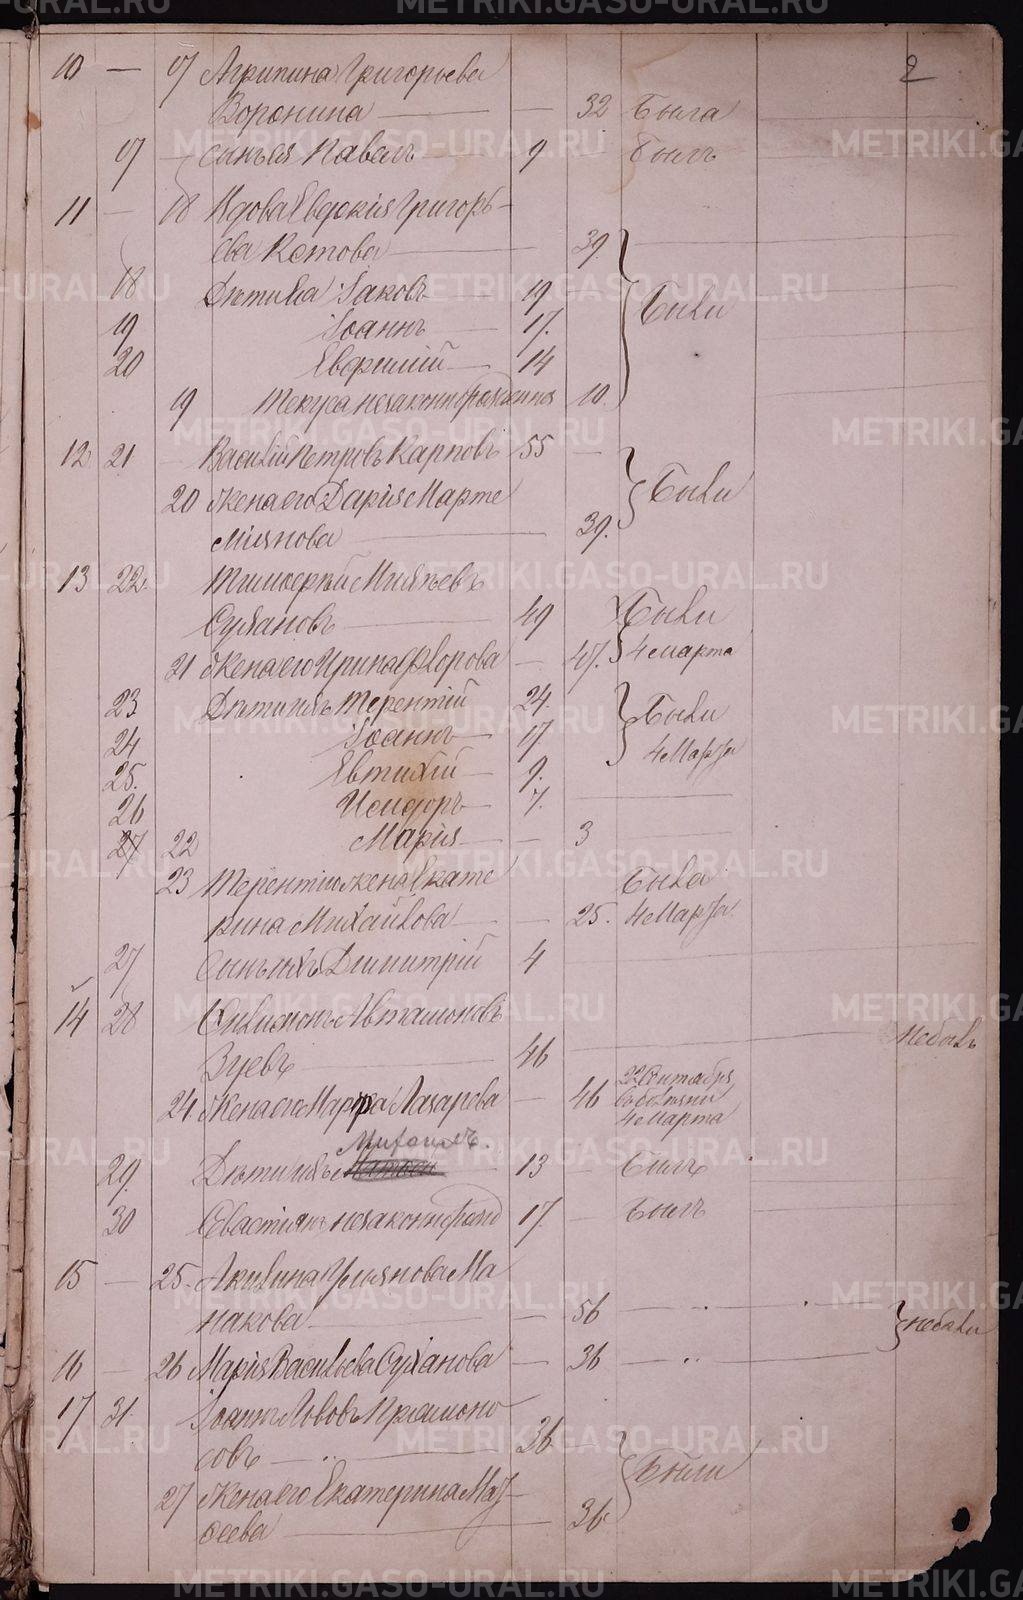 2
10 — 17 Агрипина Григорьева
Воронина — — 32 Была
17 — сынъ ея Павелъ — 9 — Былъ
11 — 18 Вдова Евдокія Григорь-
ева Котова — 39
18 Дѣти ея Іаковъ — 19
19 Іоаннъ — 17.
20 Евфимій — 14
Были
19 Текуса незаконнорожденная 10.
12 21 — Василій Петровъ Карповъ 55 —
20 жена его Дарія Марте
міянова — 39.
Были
13 22. Тимоѳей
Сухановъ — 49 Были
21 Жена его Ирина Флорова — 47. 4 марта
23 Дѣти ихъ Терентій 24.
24 Іоаннъ — 17.
Были
4 Марта
25. Евтихій — 9.
26 Исидоръ — 7.
27 22 Марія — — 3
23 Терентію жена Екате
Была
рина Михайлова — — 25. 4 Марта
27 Сынъ ихъ Димитрій 4
14 28 Филимонъ Автамоновъ
Зуевъ — 46 Не былъ
24 Жена его Марфа Лазарева — 46
22 Сентября
4 Марта
Михаилъ.
29. Дѣти ихъ — 13 — Былъ
30 Севастіянъ незаконнорожд 17. — Былъ
15 — 25. Акилина Ульянова Ма
накова — — 56
16 — 26 Марія Васильева Суханова — 36
не были
17 31. Іоаннъ Львовъ Пріамоно
совъ — 36
27 Жена его Екатерина Мат-
ѳеева — 36
Были
METRIKI.GASO-URAL.RU